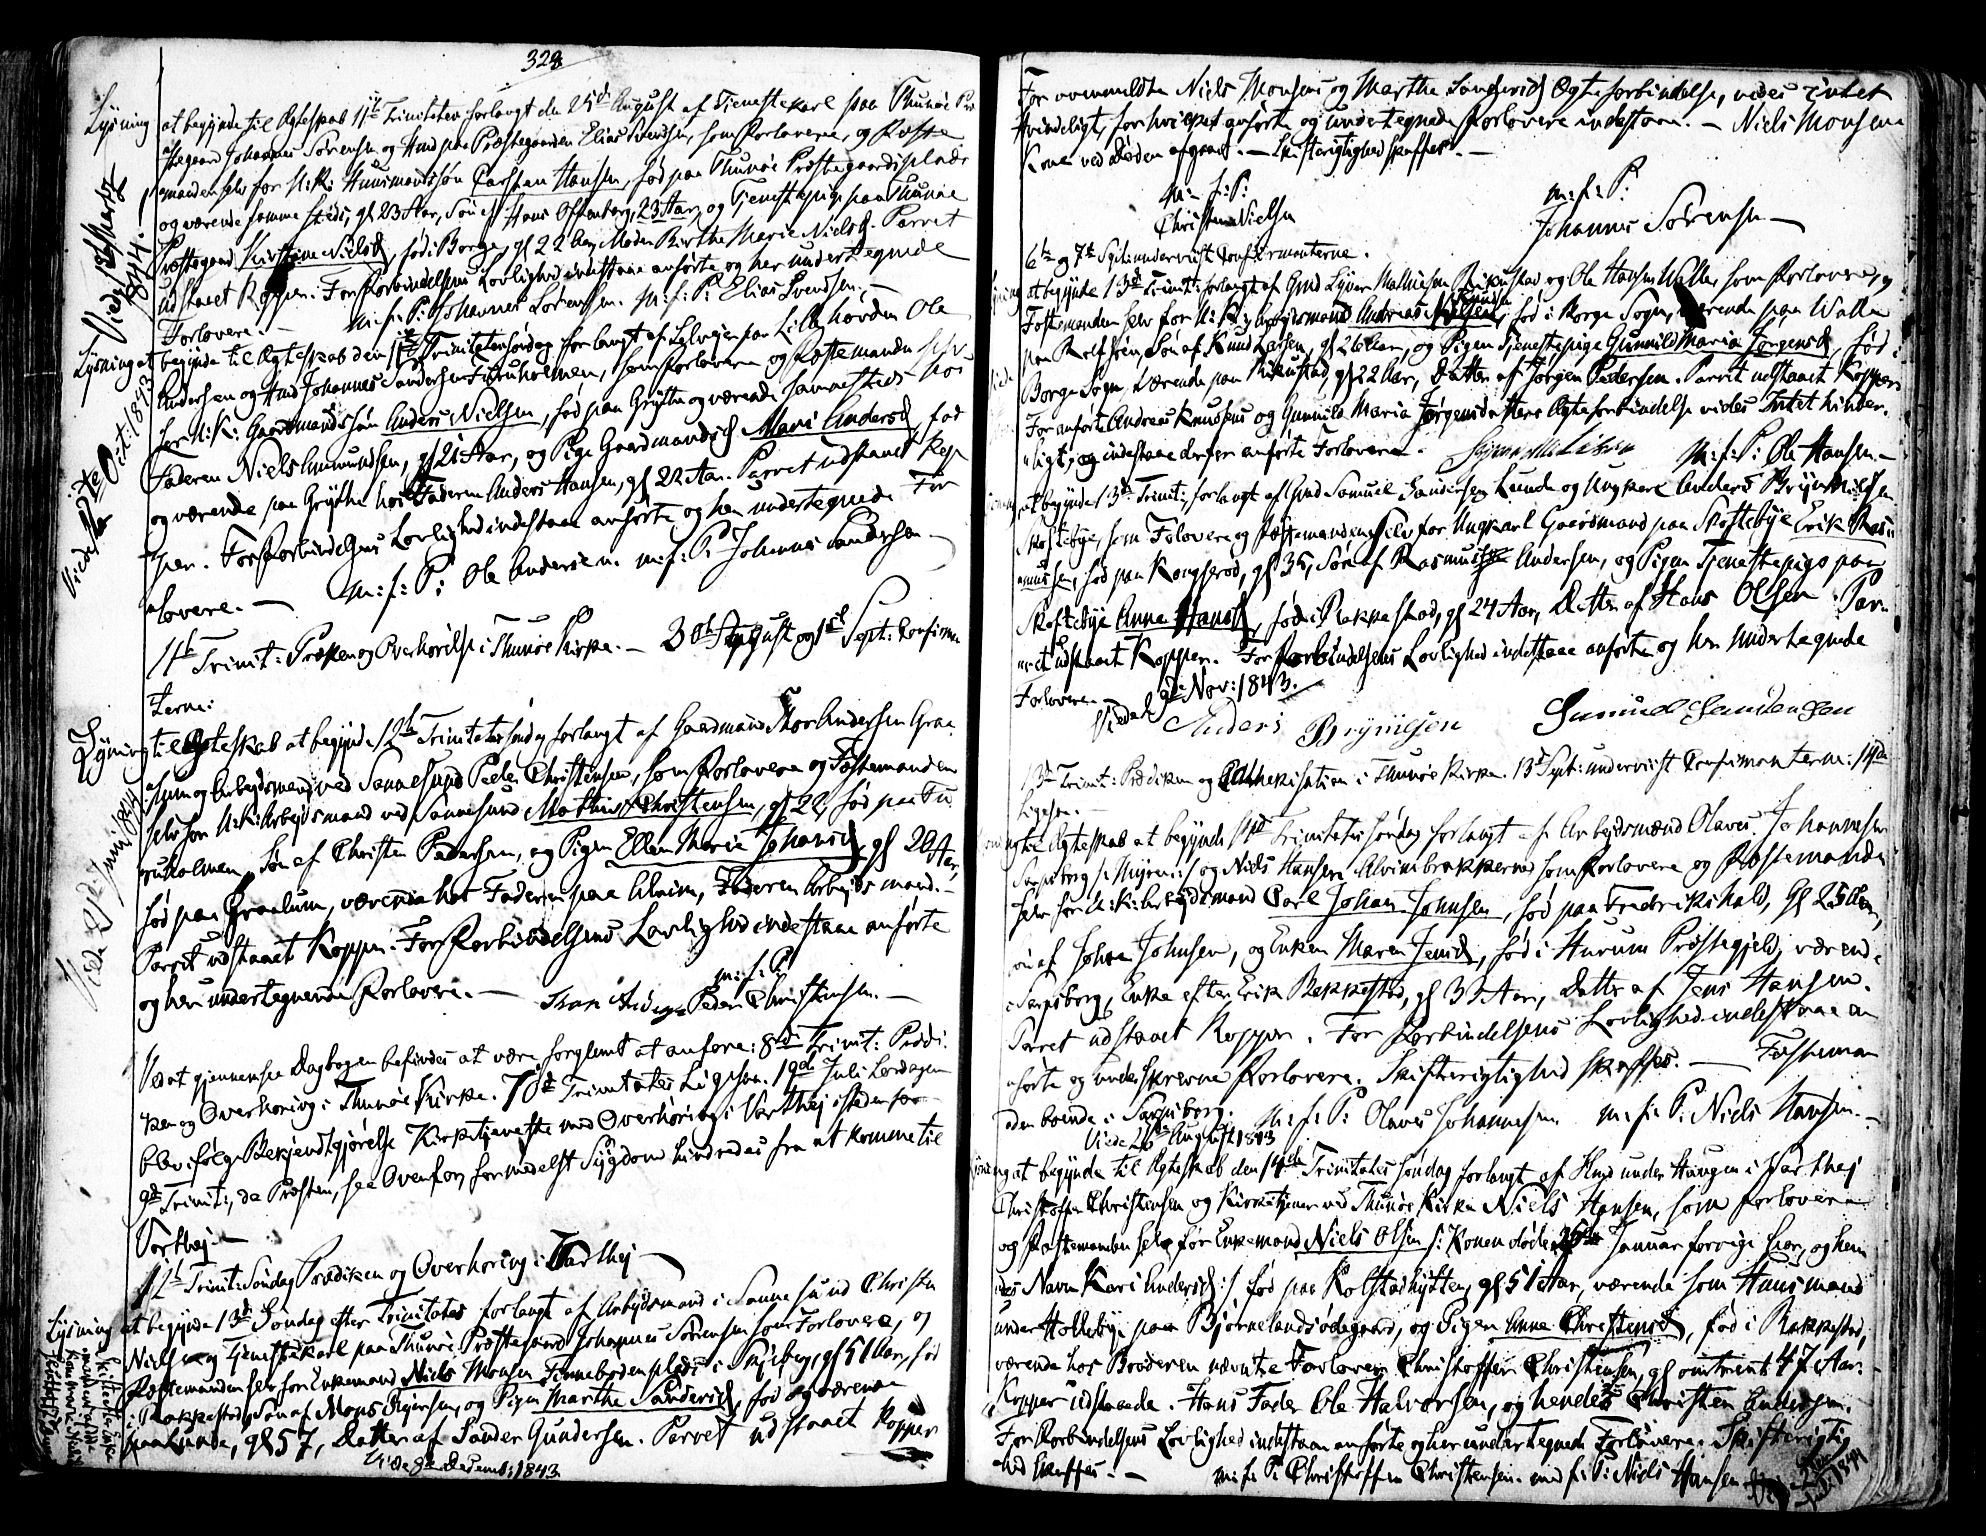 328
Lysning at begynde til Ægteskab 11te Trinitatis forlangt den 25de August af Tjenestekarl paa Thunøe Præ
stegaard Johannes Sørensen og Huusmd paa Præstegaarden Elias Svendsen, som Forlovere, og Fæste
manden selv for U:K: Huusmandssøn Carsten Hansen, født paa Thunøe Præstegaardsplads
og værende samme steds, gl 23 Aar, Søn af Hans Offenberg, 23 Aar, og Tjenestepige paa Thunøe
Præstegaard Kirstine Nielsd, født i Borge, gl 22 Aar, Moder Birthe Marie Nielsd. Parret
udstaaet Kopper. For Forbindelsens Lovlighed indestaae anførte og her undertegnede
Forlovere. — m: f: P: Johannes Sørensen. m: f: P: Elias Svendsen. —
Viede 1844.
Lysning at begynde til Ægteskab den 11te Trinitatis søndag forlangt af Selveier paa Lillehovden Ole
Andersen og Huusmd Johannes Sandersen Furuholmen, som Forlovere og Fæstemanden selv
for U:K: Gaardmandssøn Anders Nielsen, født paa Grydte og værende sammesteds hos
Faderen Niels Amundsen, gl 21 Aar, og Pige Gaardmandsd Mari Andersd, født
og værende paa Grydte hos Faderen Anders Hansen, gl 22 Aar. Parret udstaaet Kop
per. For Forbindelsens Lovlighed indestaae anførte og her undertegnede For
lovere. — m: f: P: Ole Andersen. m: f: P: Johannes Sandersen —
Viede Oct: 1843
11te Trinit: Præken og Overhørelse i Thunøe Kirke. — 30te August og 1ste Sept: Confirman
terne:
Lysning til Ægteskab at begynde 12te Trinitatis søndag forlangt af Gaardmand Thor Andersen Graa
lum og Arbeidsmand ved Sannesund Peder Christensen, som Forlovere og Fæstemanden
selv for U:K: Arbeidsmand ved Sannesund Mathias Christensen, gl 22, født paa Fu
ruholmen, Søn af Christen Pedersen, og Pigen Ellen Maria Johansd, gl 20 Aar,
født paa Graalum, værende hos Faderen paa Alvim, Faderen Arbeidsmand. —
Parret udstaaet Kopper. For Forbindelsens Lovlighed indestaae anførte
og her undertegnede Forlovere. — Thor Anders m: f: P: Peder Christensen. —
Viede 27 1844
Ved at gjennemsee Dagbogen befindes at være forglemt at anføre: 8de Trinit: Prædi
ken og Overhøring i Thunøe Kirke. 10de Trinitatis Ligesaa. 19de Juli Lørdagen
blev ifølge Bekjendtgjørelse Kirketjeneste med Overhøring i Varthej istedenfor
9de Trinit:, da Præsten, see Ovenfor, formedelst Sygdom hindredes fra at komme til
Varthej. —
12te Trinit: Søndag Prædiken og Overhøring i Varthej —
Lysning at begynde 13de Søndag efter Trinitatis forlangt af Arbeidsmand i Sannesund Christen
Nielsen og Tjenestekarl paa Thunøe Præstegaard Johannes Sørensen som Forlovere, og
Fæstemanden selv for Enkemand Niels Monsen Finnebøden plads i Skjeberg, gl 51 Aar, født
i Rakkestad, Søn af Mons Ejersen, og Pigen Marthe Sandersd, født og værende
paa Lunde, gl 57, Datter af Sander Gundersen. Parret udstaaet Kopper
Viede 8de Decemb: 1843
For ovenmeldte Niels Monsens og Marthe Sandersds Ægteforbindelse, vides intet
Hinderligt, for hvilket anførte og undertegnede Forlovere indestaae. — Niels Monsens
Kone ved Døden afgaaet. — Skifterigtighed skaffes. —
m: f: P:
Christen Nielsen
m: f: P:
Johannes Sørensen —
6te og 7de Sept: underviist Confirmanterne.
at begynde 13de Trinit: forlangt af Gmd Syver Mathisen Rikustad og Ole Hansen Walle, som Forlovere, og
Fæstemanden selv for U:K: Arbeidsmand Andreas Knudsen, født i Borge Sogn, værende paa Walle
paa Rolfsøen, Søn af Knud Larsen, gl 26 Aar, og Pigen Tjenestepige Gunnild Maria Jørgensd, født i
Borge Sogn, værende paa Rikustad, gl 22 Aar, Datter af Jørgen Pedersen. Parret udstaaet Kopper.
For anførte Andreas Knudsens og Gunnild Maria Jørgensdatters Ægteforbindelse vides Intet hinder
ligt, og indestaae derfor anførte Forlovere. m: f: P: Ole Hansen. —
at begynde 13de Trinit:, forlangt af Gmd Samuel Sandersen Lunde og Ungkarl Anders Brynnildsen
Skoftebye, som Forlovere og Fæstemanden selv for Ungkarl Gaardmand paa Skoftebye Erik Ras
mussen, født paa Kongsrød, gl 35, Søn af Rasmus Andersen, og Pigen Tjenestepige paa
Skoftebye Anne Hansd, født i Rakkestad, gl 24 Aar, Datter af Hans Olsen. Par
ret udstaaet Kopper. For Forbindelsens Lovlighed indestaae anførte og her undertegnede
Forlovere —
Viede 9de Nov: 1843.
Anders Brynilsen Samuel Sandersen
13de Trinit: Prædiken og Catekisation i Thunøe Kirke. 13de Sept: underviist Confirmanterne: 14de
Ligesaa. —
til Ægteskab at begynde 14de Trinitatis søndag forlangt af Arbeidsmand Olaves Johannesen
Sarpsborg og Niels Hansen Alvimbrækkerne som Forlovere og Fæstemanden
selv for U:K: Arbeidsmand Carl Johan Johnsen, født paa Fredrikshald, gl 25 Aar,
Søn af Johan Johnsen, og Enken Maren Jensd, født i Hurum Præstegjeld, værende
i Sarpsborg, Enke efter Erik Bekkestød, gl 33 Aar, Datter af Jens Hansen.
Parret udstaaet Kopper. For Forbindelsens Lovlighed indestaae an
førte og underskrevne Forlovere. Skifterigtighed skaffes. — Fæsteman
den boende i Sarpsborg. m: f: P: Olaves Johannesen m: f: P: Niels Hansen. —
Viede 26de August 1843
at begynde til Ægteskab den 14de Trinitatis søndag forlangt af Hmd under Haugen i Varthej
Christoffer Christensen og Kirketjener ved Thunøe Kirke Niels Hansen, som Forlovere
og Fæstemanden selv for Enkemand Niels Olsen /: Konen døde Januar forrige Aar, og hen
des Navn Kari Andersd :/ født paa Kolstadhytten, gl 51 Aar, værende som Huusmand
under Hollebye paa Bjørnelandsødegaard, og Pigen Anne Christensd, født i Rakkestad,
værende hos Broderen nævnte Forlover Christoffer Christensen, gl omtrent 47 Aar. —
Kopper udstaaede. Hans Fader Ole Halvorsen, og hendes Christen Andersen.
For Forbindelsens Lovlighed indestaae anførte og her undertegnede Forlovere. Skifterigtig
hed skaffes. — m: f: P: Christoffer Christensen. med f: P: Niels Hansen
1844